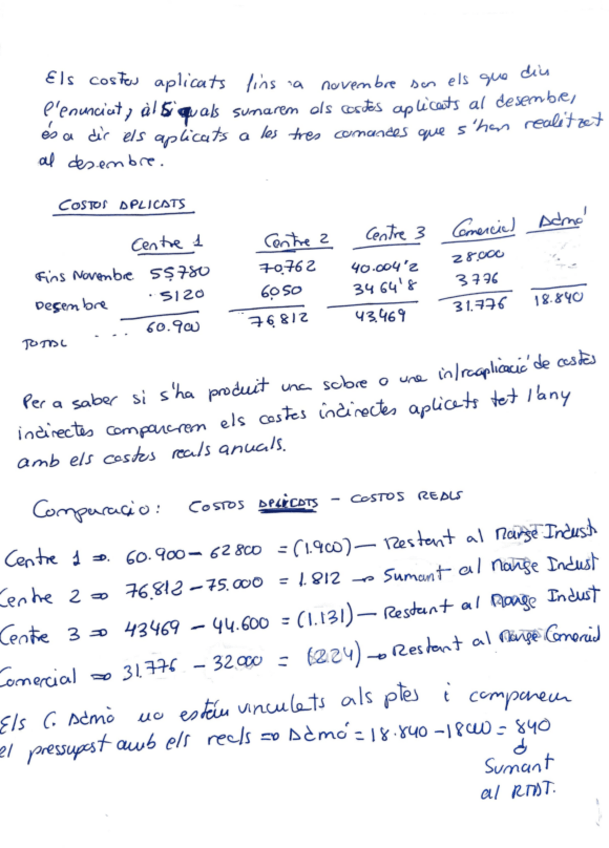 Els costes aplicats fins a novembre son els que diu
l'enunciat, als quals sumarem als costes aplicats al desembre,
és a dir els aplicats a les tres comandes que s'han realitzat
al desembre.
COSTOS APLICATS
Centre 1 Centre 2 Centre 3 Comercial Admó
Fins Novembre 55780 70.762 40.004'2 28.000
Desembre 5120 6050 3464'8 3776
TOTAL ... 60.900 76.812 43.469 31.776 18.840
Per a saber si s'ha produit una sobre o una infraaplicació de costes
indirectes compararem els costes indirectes aplicats tot l'any
amb els costes reals anuals.
Comparacio: COSTOS APLICATS - COSTOS REALS
Centre 1 => 60.900 - 62800 = (1.900) — Restant al Marge Indust
Centre 2 => 76.812 - 75.000 = 1.812 → Sumant al Marge Indust
Centre 3 => 43469 - 44.600 = (1.131) — Restant al Marge Indust
Comercial => 31.776 - 32000 = (224) → Restant al Marge Comercial
Els C. Admò no estan vinculats als ptes i comparem
el pressupost amb els reals => Admó = 18.840 - 18000 = 840
↓
Sumant
al RTAT.